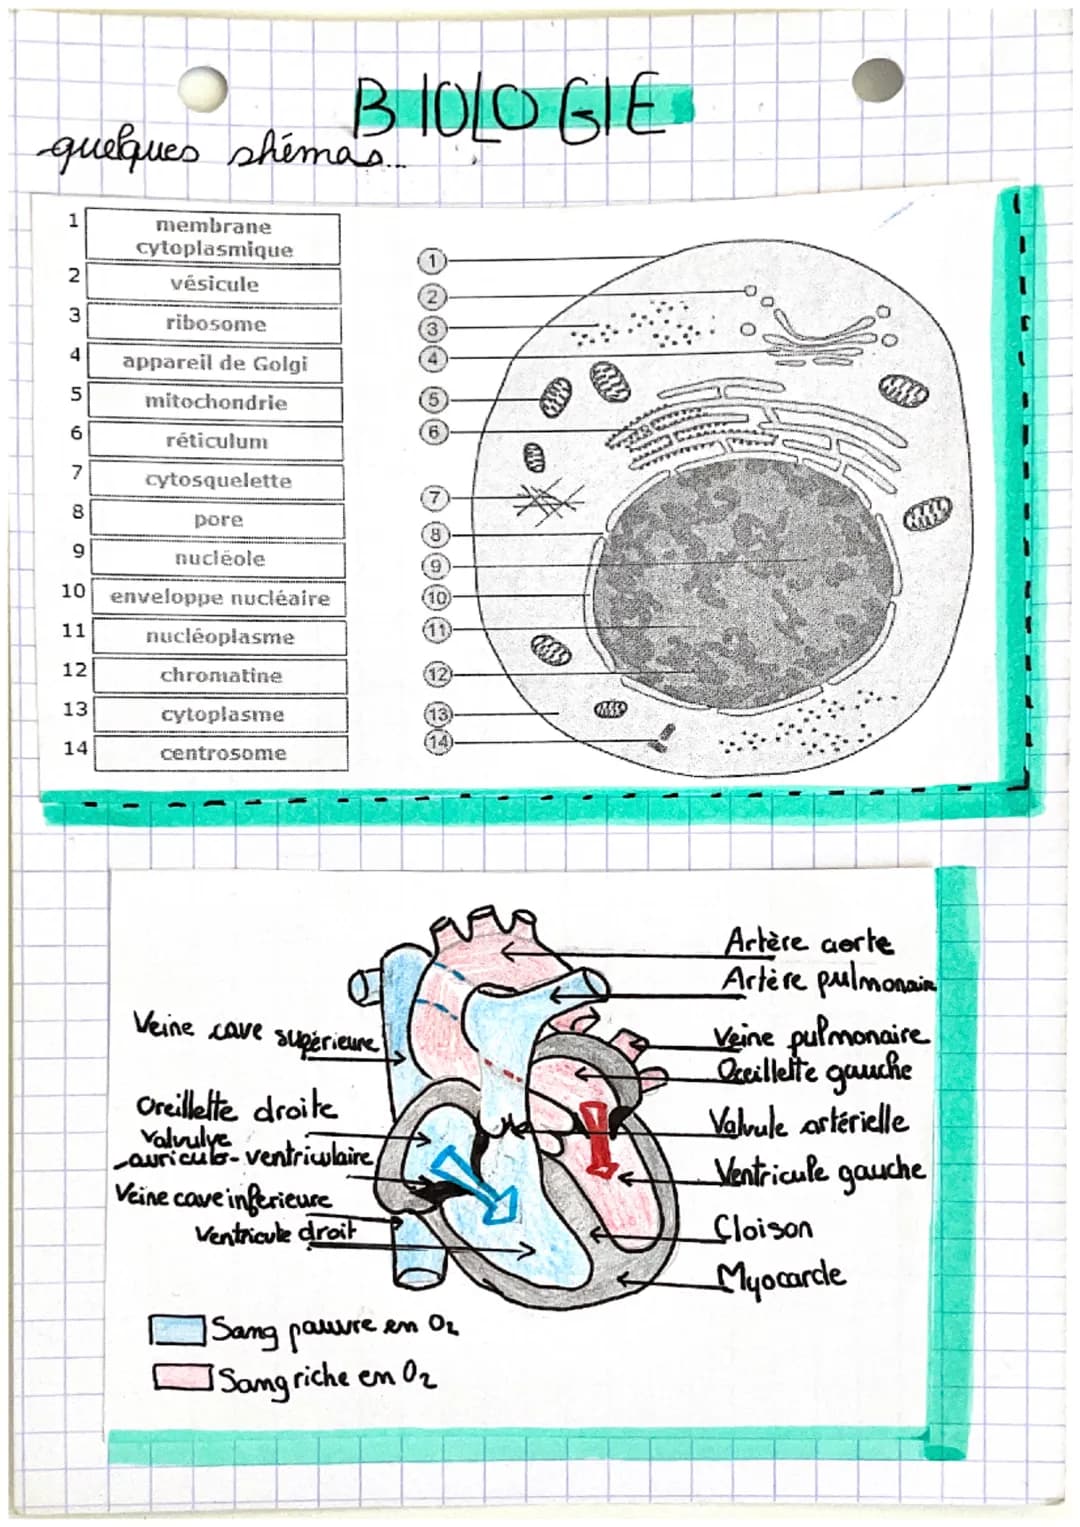 BIOLOGIE
quelques shémas...
1 membrane
cytoplasmique
2 vésicule
3 ribosome
4 appareil de Golgi
5 mitochondrie
6 réticulum
7 cytosquelette
8 pore
9 nucléole
10 enveloppe nucléaire
11 nucléoplasme
12 chromatine
13 cytoplasme
14 centrosome
1
2
3
4
5
6
7
8
9
10
11
12
13
14
Veine cave supérieure
Oreillette droite
Valvulve
auriculo-ventriculaire
Veine cave inférieure
Ventricule droit
Artère aorte
Artère pulmonair
Veine pulmonaire
Oreillette gauche
Valvule artérielle
Ventricule gauche
Cloison
Myocarde
Sang pauvre en O2
Sang riche en O2